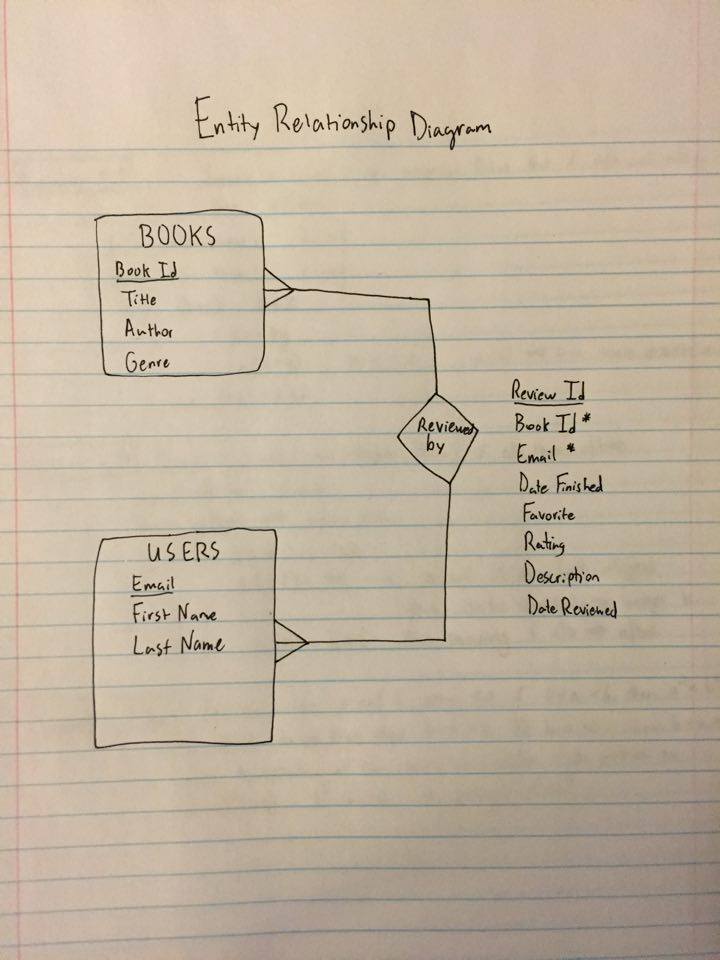 Entity Relationship Diagram
BOOKS
Book Id
Title
Author
Genre
Reviewed
by
Review Id
Book Id*
Email *
Date Finished
Favorite
Rating
Description
Date Reviewed
USERS
Email
First Name
Last Name